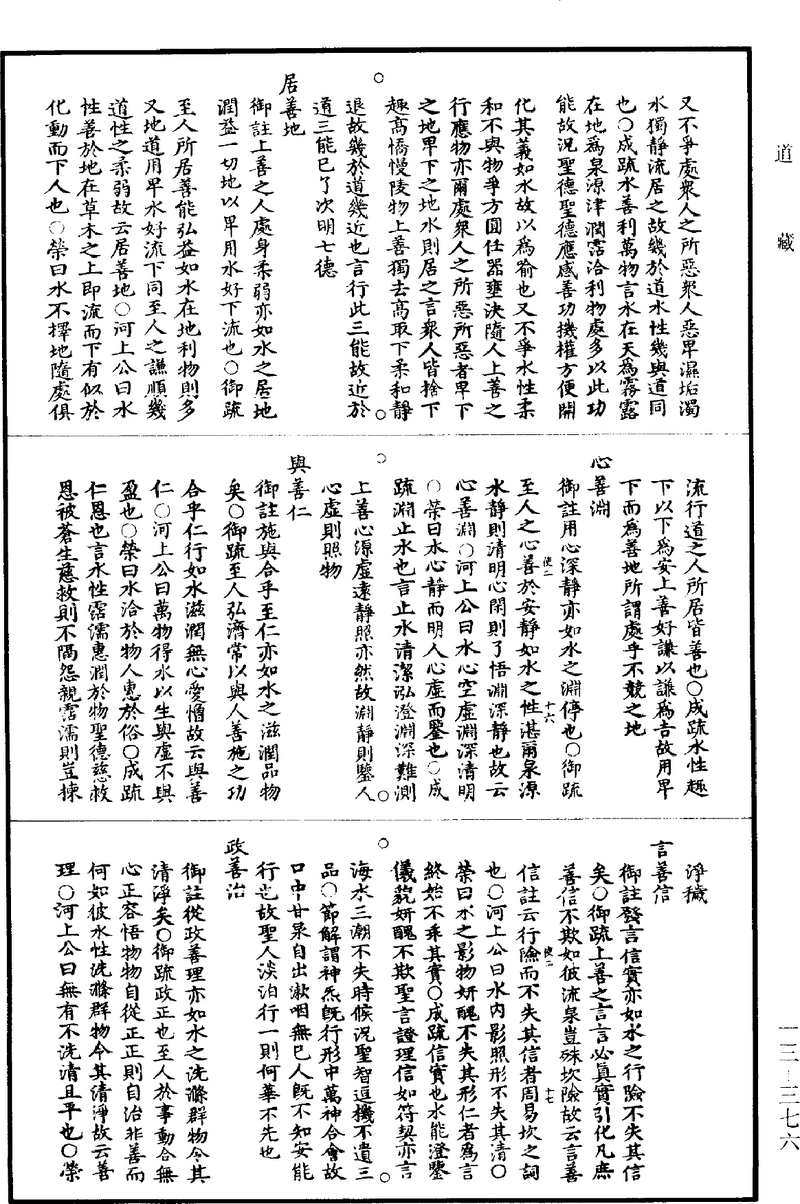 道藏
又不爭處衆人之所惡衆人惡卑濕垢濁
水獨靜流居之故幾於道水性幾與道同
也○成疏水善利萬物言水在天為霧露
在地爲泉源津潤露洽利物處多以此功
能故況聖德聖德應感善功機權方便開
化其義如水故以爲喻也又不爭水性柔
和不與物爭方圓任器壅決隨人上善之
行應物亦爾處衆人之所惡所惡者卑下
之地卑下之地水則居之言衆人皆捨下
趣高憍慢陵物上善獨去高取下柔和靜
退故幾於道幾近也言行此三能故近於
道三能已了次明七德
居善地
御註上善之人處身柔弱亦如水之居地
潤益一切地以卑用水好下流也○御疏
至人所居善能弘益如水在地利物則多
又地道用卑水好流下同至人之謙順幾
道性之柔弱故云居善地○河上公曰水
性善於地在草木之上即流而下有似於
化動而下人也○榮曰水不擇地隨處俱
流行道之人所居皆善也○成疏水性趣
下以下爲安上善好謙以謙爲吉故用卑
下而爲善地所謂處乎不競之地
心善淵
御註用心深靜亦如水之淵停也○御疏
至人之心善於安靜如水之性湛爾泉源
水靜則清明心閑則了悟淵深靜也故云
心善淵○河上公曰水心空虛淵深清明
○榮曰水心靜而明人心虛而鑒也○成
疏淵止水也言止水清潔泓澄淵深難測
上善心源虛遠靜照亦然故淵靜則鑒人
心虛則照物
與善仁
御註施與合乎至仁亦如水之滋潤品物
矣○御疏至人弘濟常以與人善施之功
合乎仁行如水滋潤無心愛憎故云與善
仁○河上公曰萬物得水以生與虛不與
盈也○榮曰水洽於物人惠於俗○成疏
仁恩也言水性霑濡惠潤於物聖德慈救
恩被蒼生慈救則不隔怨親霑濡則豈揀
淨穢
言善信
御註發言信實亦如水之行險不失其信
矣○御疏上善之言言必眞實引化凡庶
善信不欺如彼流泉豈殊坎險故云言善
信註云行險而不失其信者周易坎之詞
也○河上公曰水內影照形不失其清○
榮曰水之影物妍醜不失其形仁者爲言
終始不乖其實○成疏信實也水能澄鑒
儀貌妍醜不欺聖言證理信如符契亦言
海水三潮不失時候況聖智逗機不遺三
品○節解謂神炁既行形中萬神合會故
口中甘泉自出漱咽無已人既不知安能
行也故聖人淡泊行一則何華不先也
政善治
御註從政善理亦如水之洗滌群物令其
清淨矣○御疏政正也至人於事動合無
心正容悟物物自從正正則自治非善而
何如彼水性洗滌群物令其清淨故云善
理○河上公曰無有不洗清且平也○榮
使二
十六
使二
十七
一三—三七六